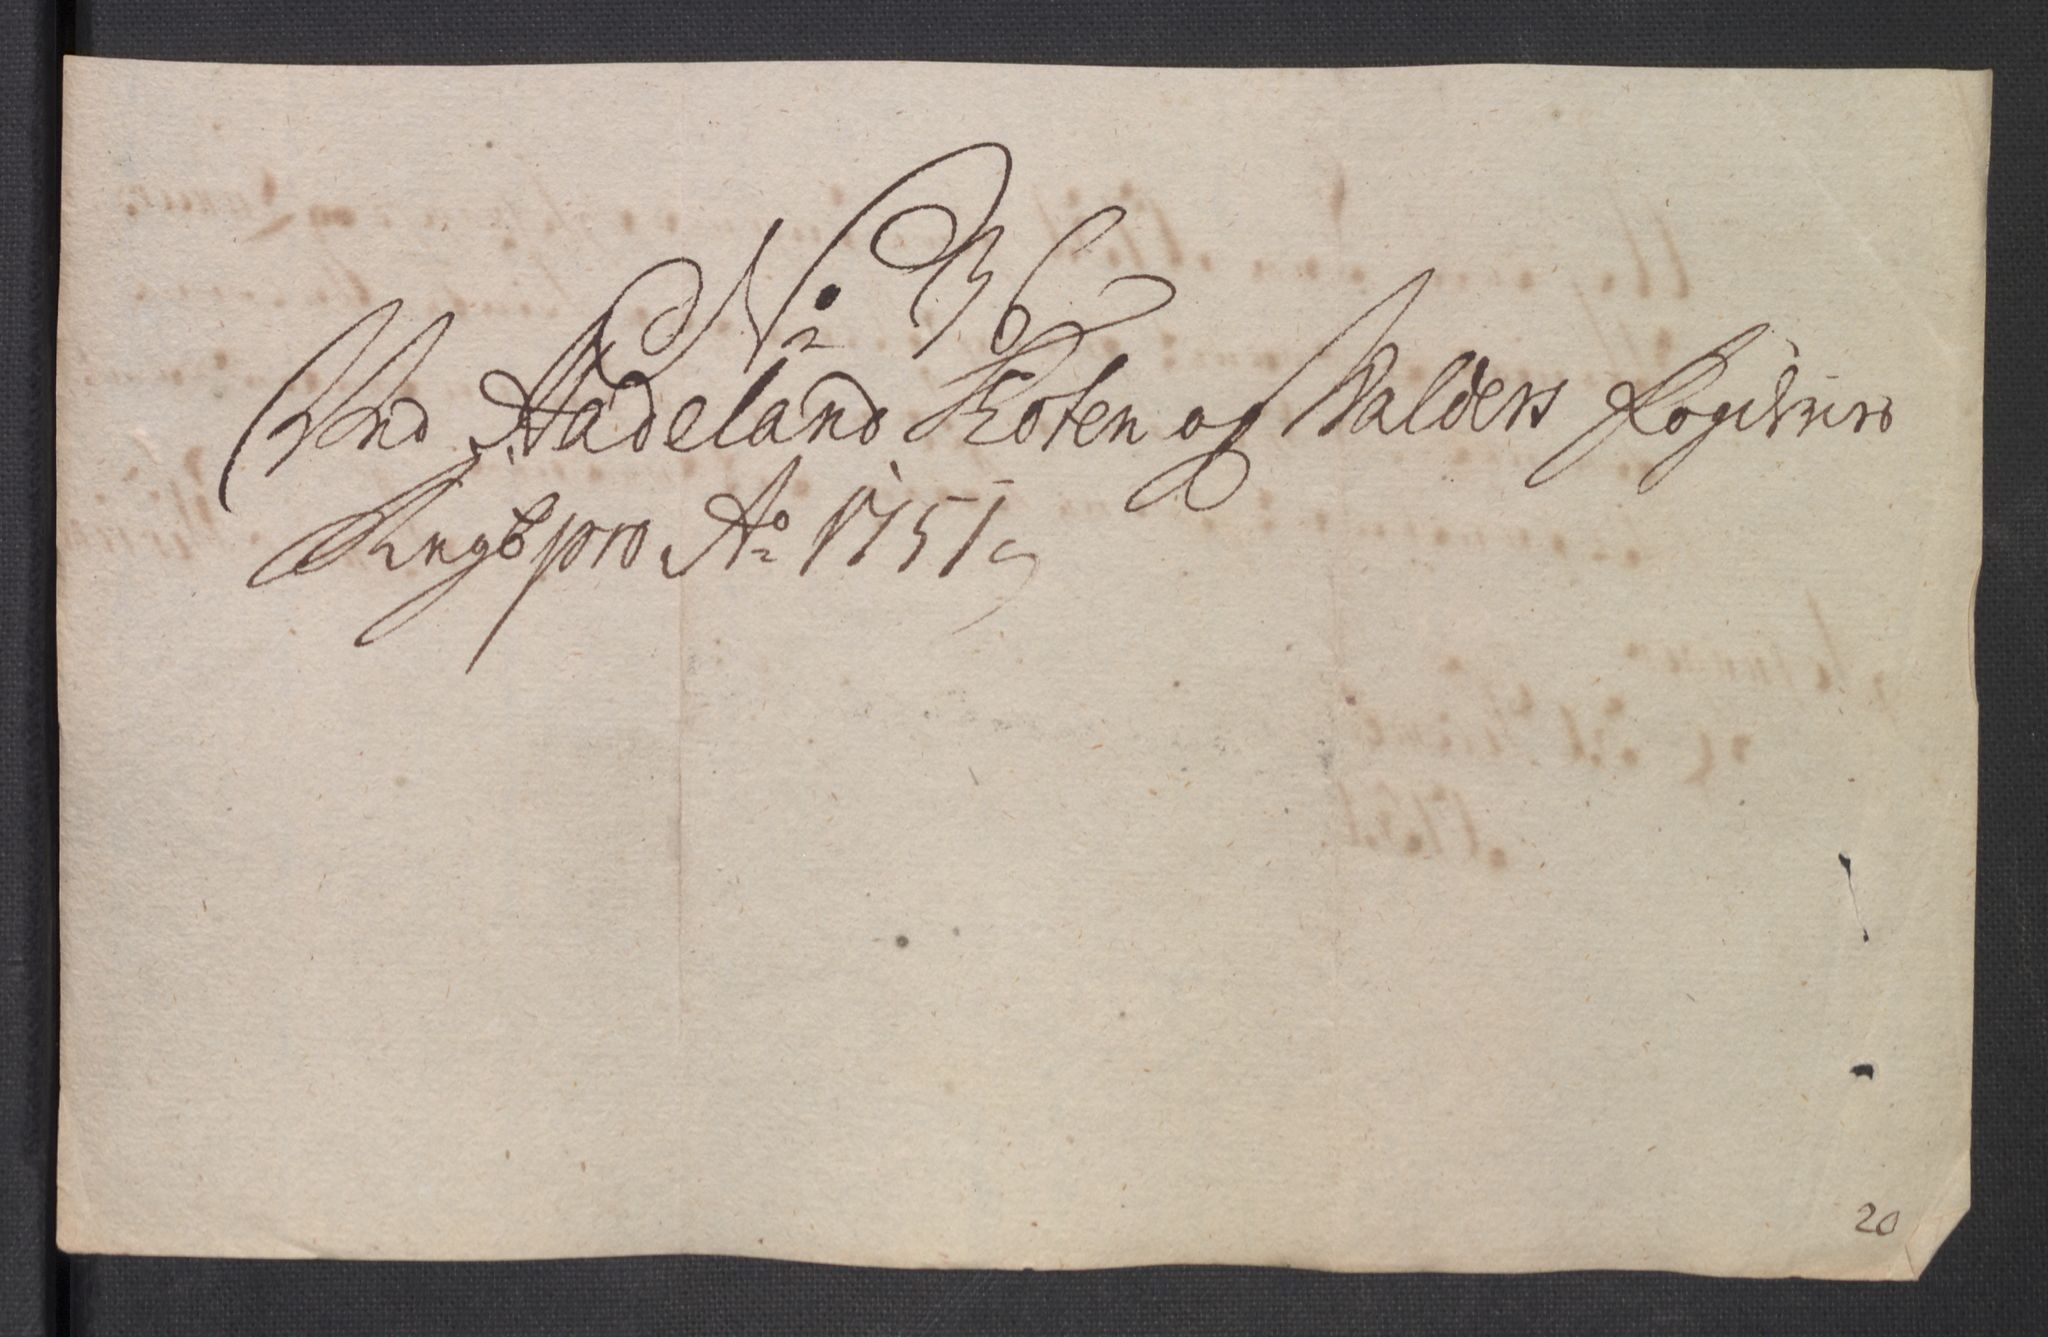 No 36
Ved Hadeland Toten og Valders Fogderiers
Regb pro Ao 1751
20